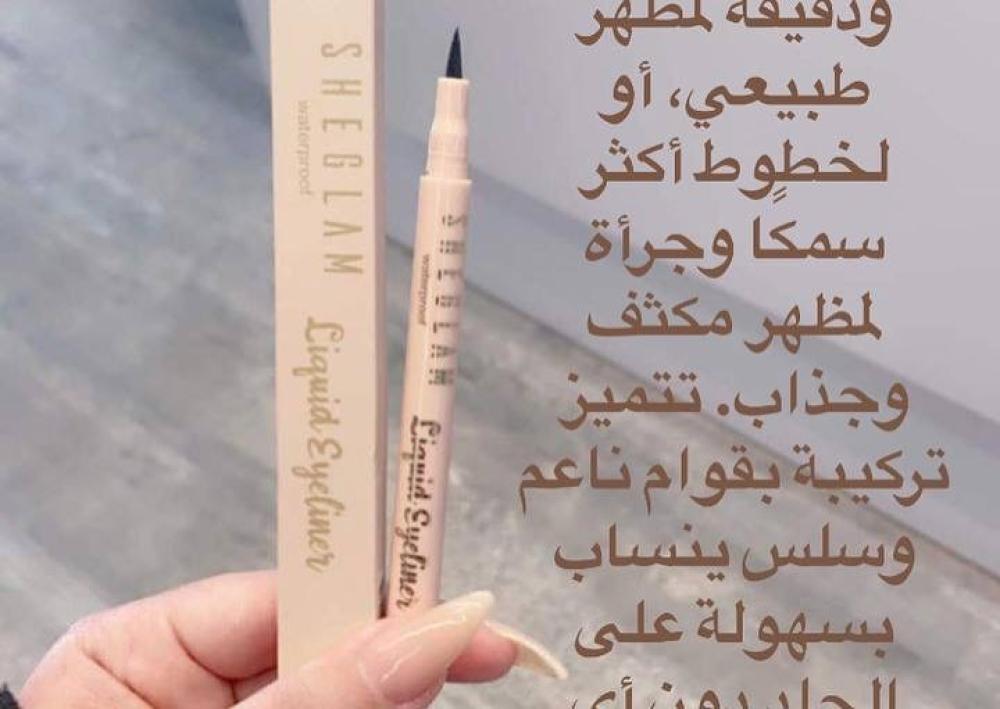 SHEGLAM
waterproof
Liquid Eyeliner
SHEGLAM
waterproof
Liquid Eyeliner
ودقيقة لمظهر
طبيعي، أو
لخطوطٍ أكثر
سمكًا وجرأة
لمظهر مكثف
وجذاب. تتميز
تركيبة بقوام ناعم
وسلس ينساب
بسهولة على
الجلد دون أي